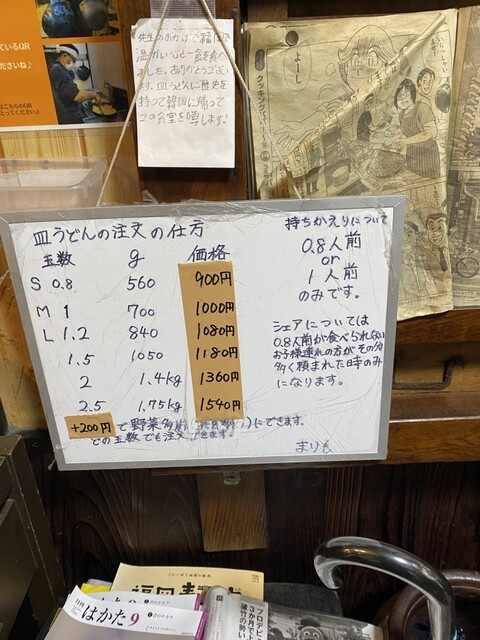 ているQR
ださいね♪
はこちらのQR
とってください♪
先生のおかげで福岡で
温かい心と一食を食べ
ました。ありがとうござい
ます。皿うどんに歴史を
持って韓国に帰って
この名室を噂します!
よーし
クッキングパパ
皿うどんの注文の仕方
玉数 g 価格
S 0.8 560 900円
M 1 700 1000円
L 1.2 840 1080円
1.5 1050 1180円
2 1.4kg 1360円
2.5 1.75kg 1540円
+200円 で野菜多め にできます。
どの玉数でも注文 できます。
持ちかえりについて
0.8人前
or
1人前
のみです。
シェアについては
0.8人前が食べられない
お子様連れの方がその分
多く頼まれた時のみ
になります。
まりも
福岡
はかた 9
プロデビ
3か月で
破竹の勢い